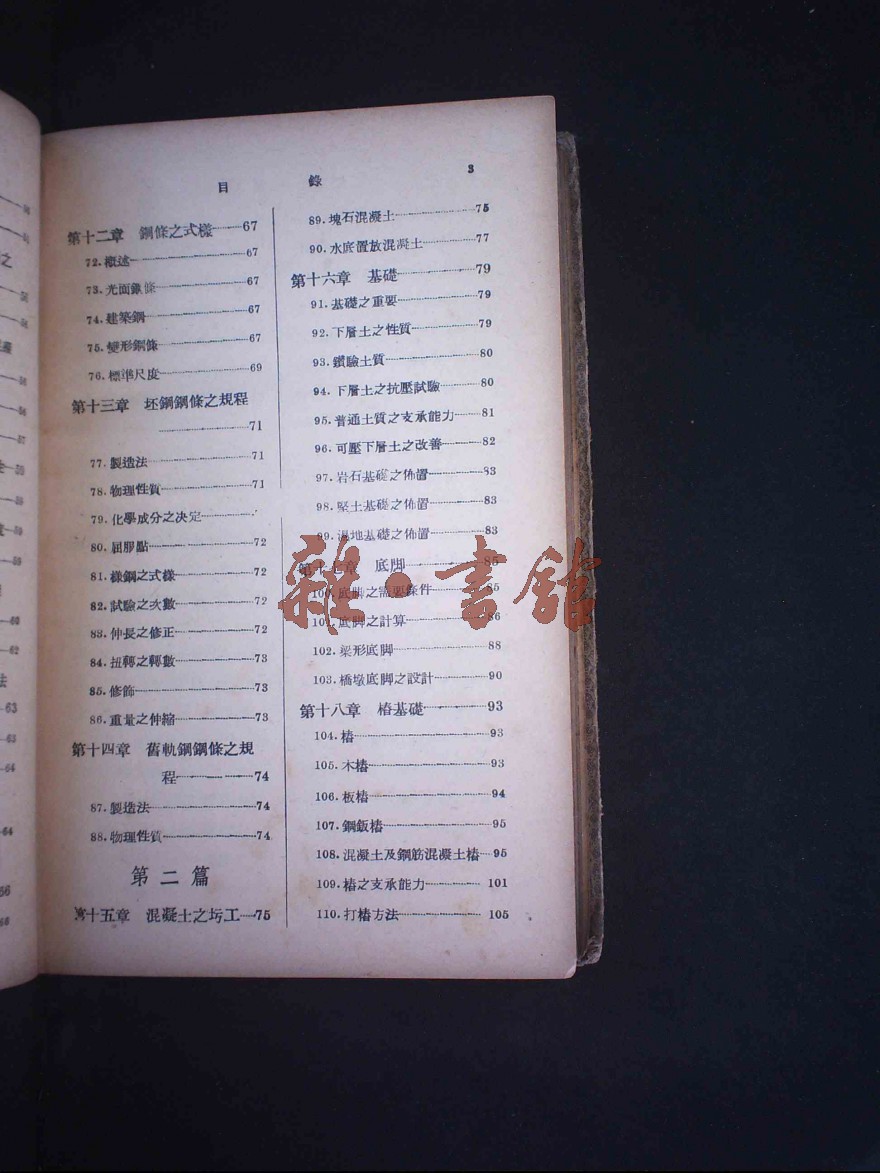 目錄 3
第十二章 鋼條之式樣 67
72. 概述 67
73. 光面鋼條 67
74. 建築鋼 67
75. 變形鋼條 67
76. 標準尺度 69
第十三章 坯鋼鋼條之規程
71
77. 製造法 71
78. 物理性質 71
79. 化學成分之決定
80. 屈膠點 72
81. 樣鋼之式樣 72
82. 試驗之次數 72
83. 伸長之修正 72
84. 扭轉之轉數 73
85. 修飾 73
86. 重量之伸縮 73
第十四章 舊軌鋼鋼條之規
程 74
87. 製造法 74
88. 物理性質 74
第二篇
第十五章 混凝土之圬工 75
89. 塊石混凝土 75
90. 水底置放混凝土 77
第十六章 基礎 79
91. 基礎之重要 79
92. 下層土之性質 79
93. 鑽驗土質 80
94. 下層土之抗壓試驗 80
95. 普通土質之支承能力 81
96. 可壓下層土之改善 82
97. 岩石基礎之佈置 83
98. 堅土基礎之佈置 83
99. 濕地基礎之佈置 83
第十七章 底脚 85
100. 底脚之需要條件 85
101. 底脚之計算 86
102. 梁形底脚 88
103. 橋墩底脚之設計 90
第十八章 樁基礎 93
104. 樁 93
105. 木樁 93
106. 板樁 94
107. 鋼鈑樁 95
108. 混凝土及鋼筋混凝土樁 95
109. 樁之支承能力 101
110. 打樁方法 105
雜·書館